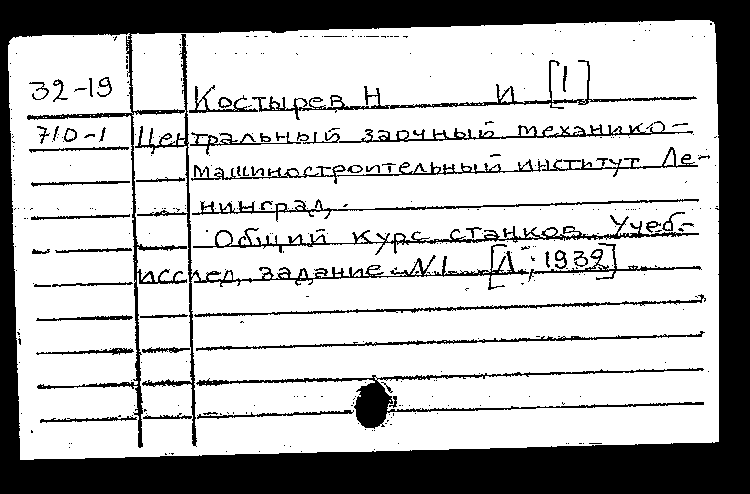 32-19 Костырев Н И [1]
710-1 Центральный заочный механико-
машиностроительный институт Ле-
нинград,
Общий курс станков. Учеб.-
исслед. задание N1 [Л., 1932]